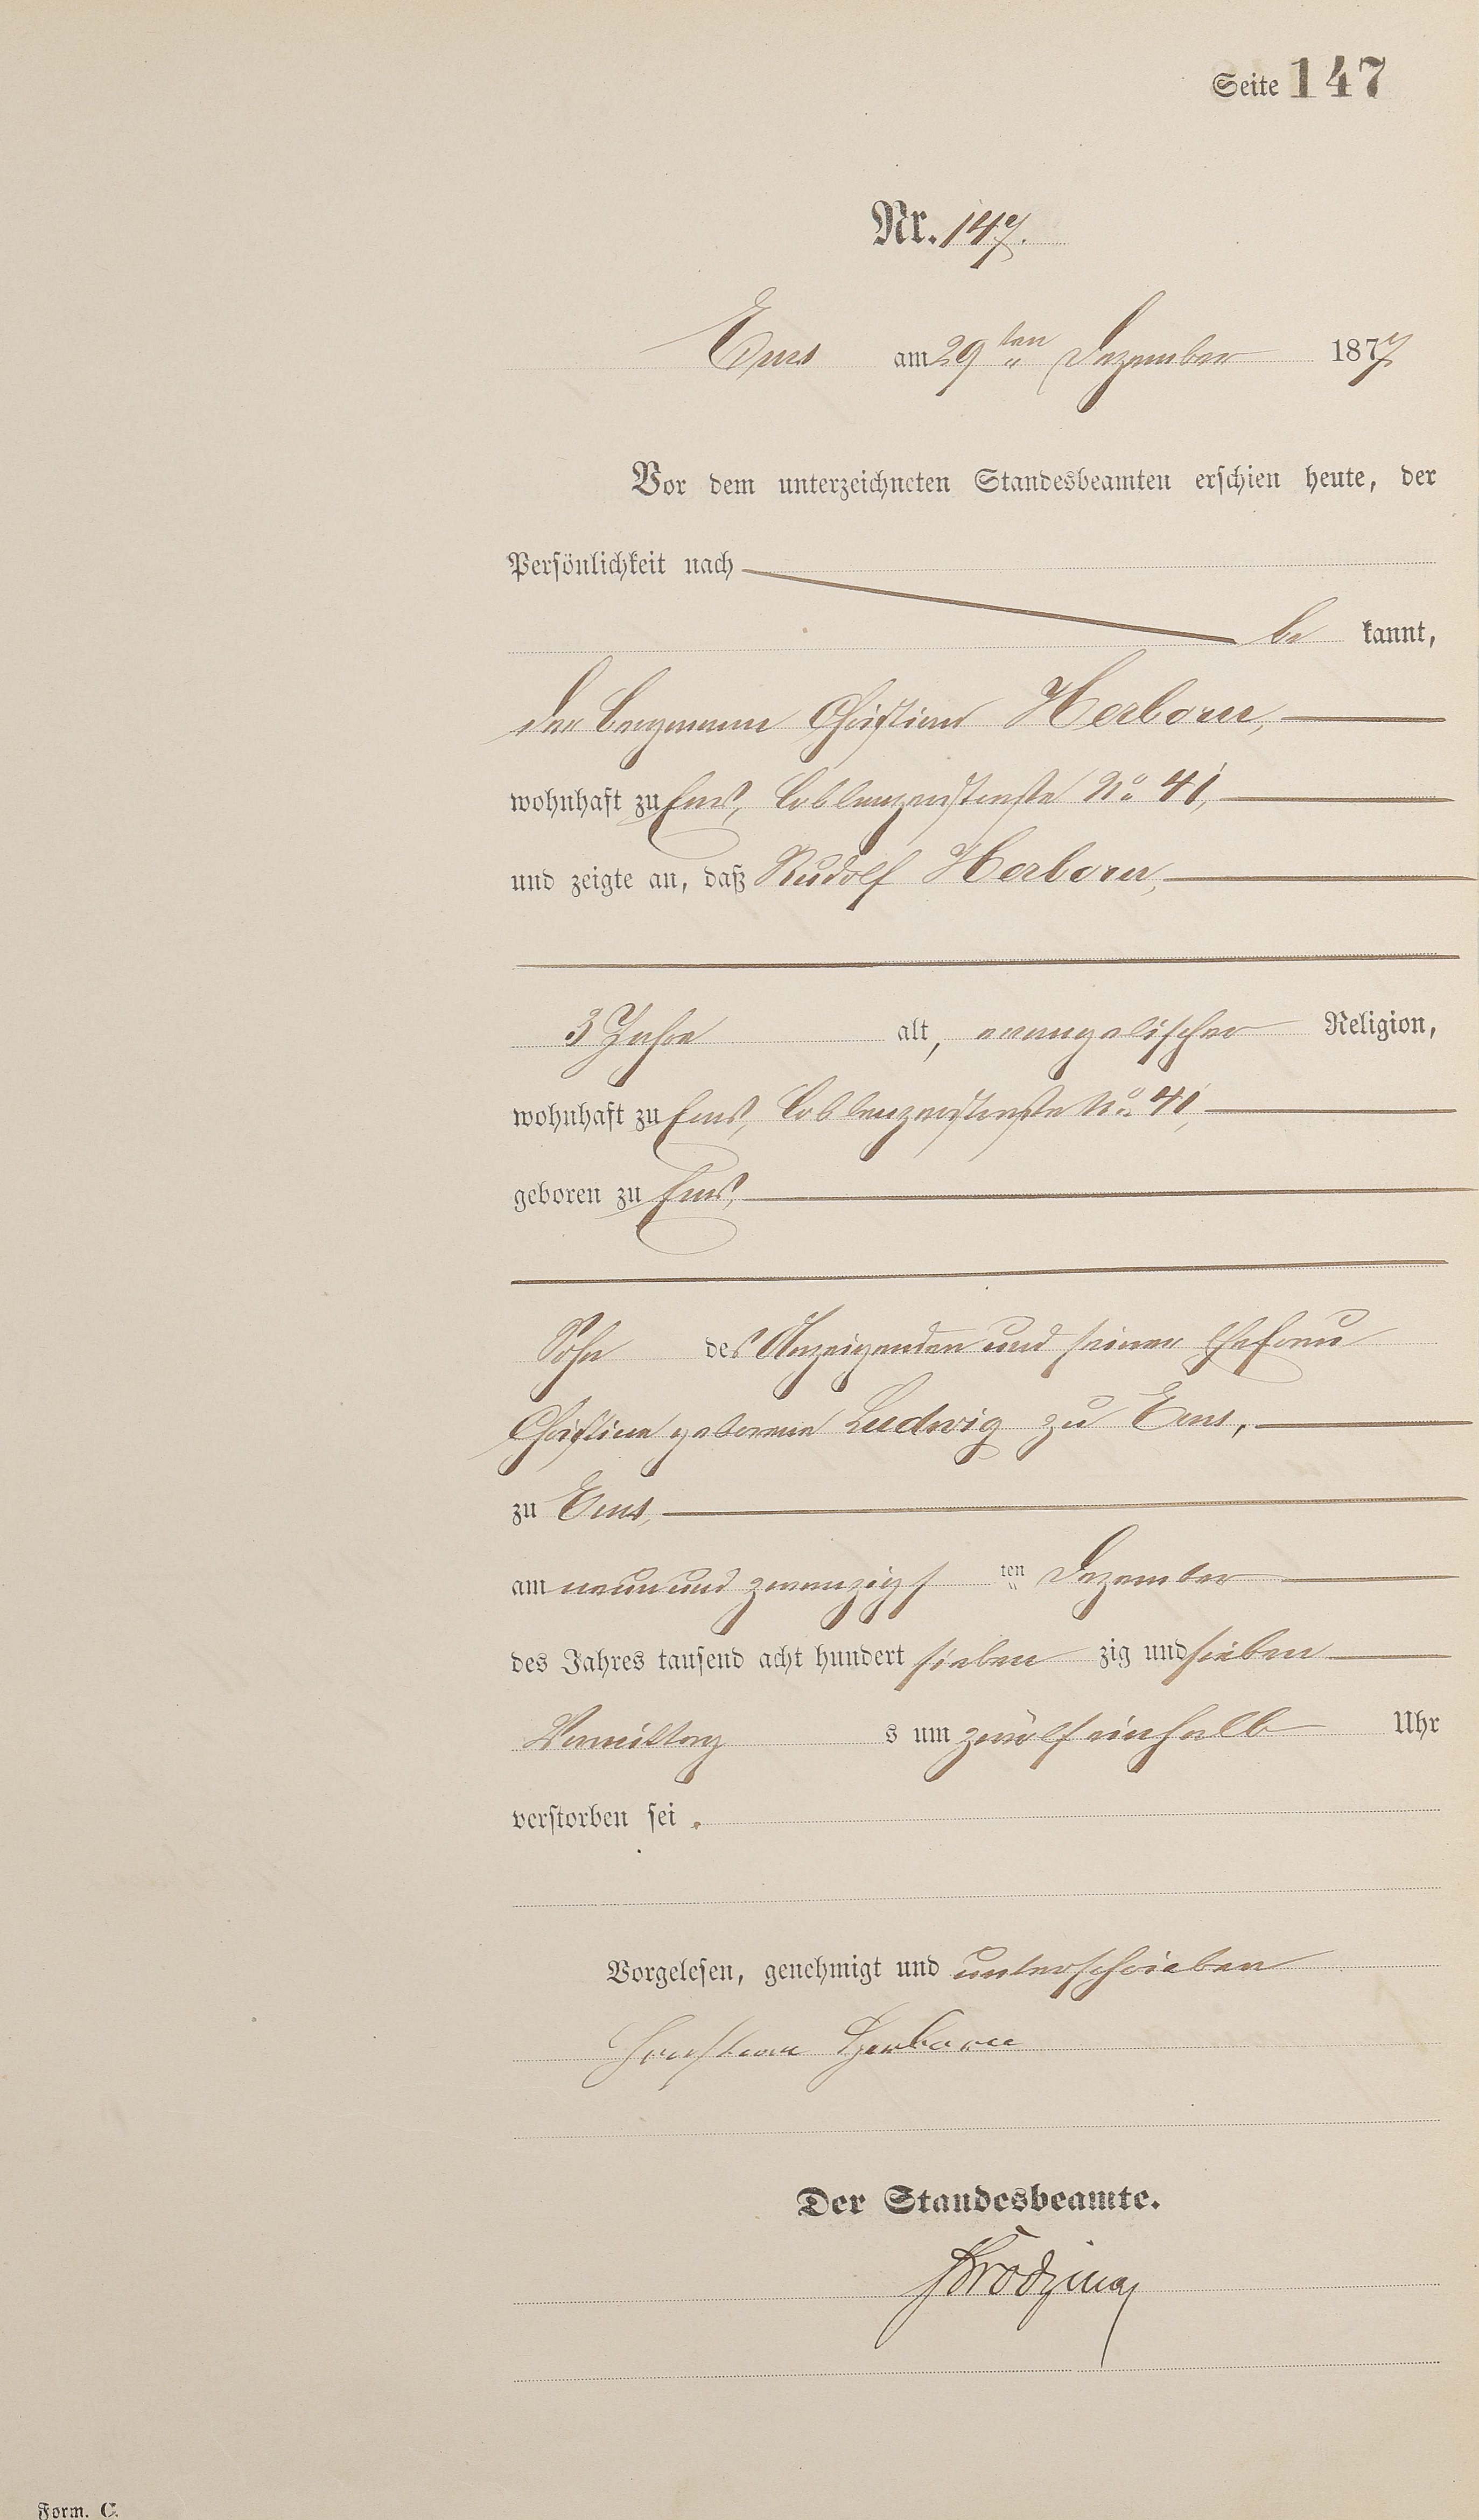 Seite 147
Nr. 147.
Ems am 29 ten Dezember 1877
Vor dem unterzeichneten Standesbeamten erschien heute, der
Persönlichkeit nach
be kannt,
der Bergmann Christian Herborn,
wohnhaft zu Ems, Coblenzerstraße No. 41,
und zeigte an, daß Rudolf Herborn,
3 Jahre alt, evangelischer Religion,
wohnhaft zu Ems, Coblenzerstraße No. 41,
geboren zu Ems,
Sohn des Anzeigenden und seiner Ehefrau
Christine geborene Ludwig zu Ems,
zu Ems,
am neunundzwanzigs ten Dezember
des Jahres tausend acht hundert sieben zig und sieben
Vormittag s um zwölfeinhalb Uhr
verstorben sei.
Vorgelesen, genehmigt und unterschrieben
Christian Herborn
Der Standesbeamte.
Form. C.